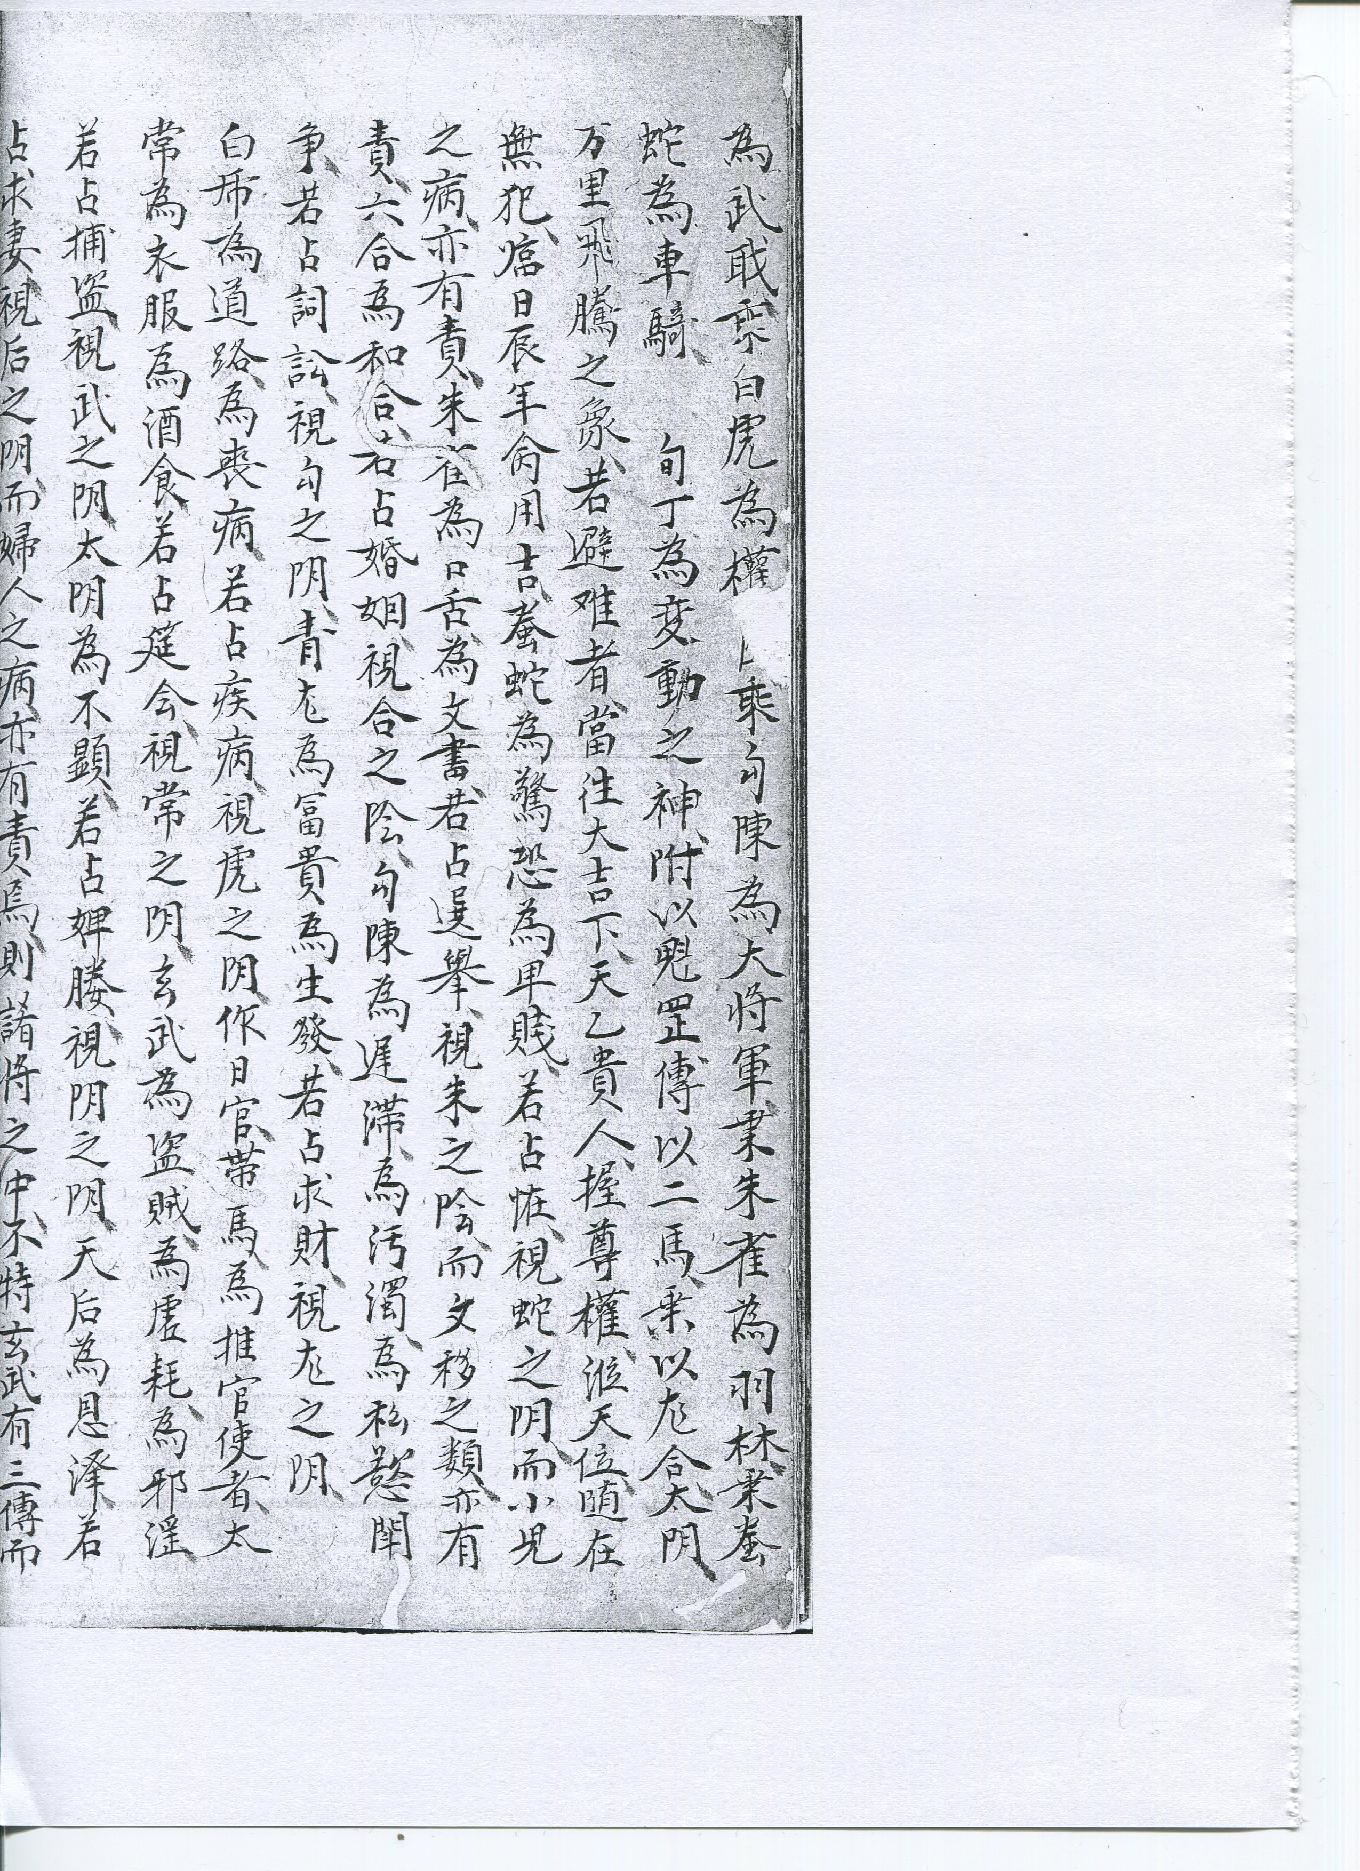 為武职乘白虎為權乘勾陳為大将軍乘朱雀為羽林乘螣
蛇為車騎 旬丁為变動之神附以魁罡傳以二馬乘以尨合太阴
万里飛騰之象若避难者當往大吉下天乙貴人握尊權涖天位随在
無犯臨日辰年命用吉螣蛇為驚恐為卑賤若占怪視蛇之阴而小児
之病亦有責朱雀為口舌為文書若占選舉視朱之陰而文移之類亦有
責六合為和合若占婚姻視合之陰勾陳為遅滯為污濁為私慾閗
争若占詞訟視勾之阴青尨為冨貴為生發若占求財視尨之阴
白乕為道路為喪病若占疾病視虎之阴作日官帶馬為推官使者太
常為衣服為酒食若占筵会視常之阴玄武為盗賊為虚耗為邪淫
若占捕盗視武之阴太阴為不顯若占婢媵視阴之阴天后為恩澤若
占求妻視后之阴而婦人之病亦有責焉則諸将之中不特玄武有三傳而